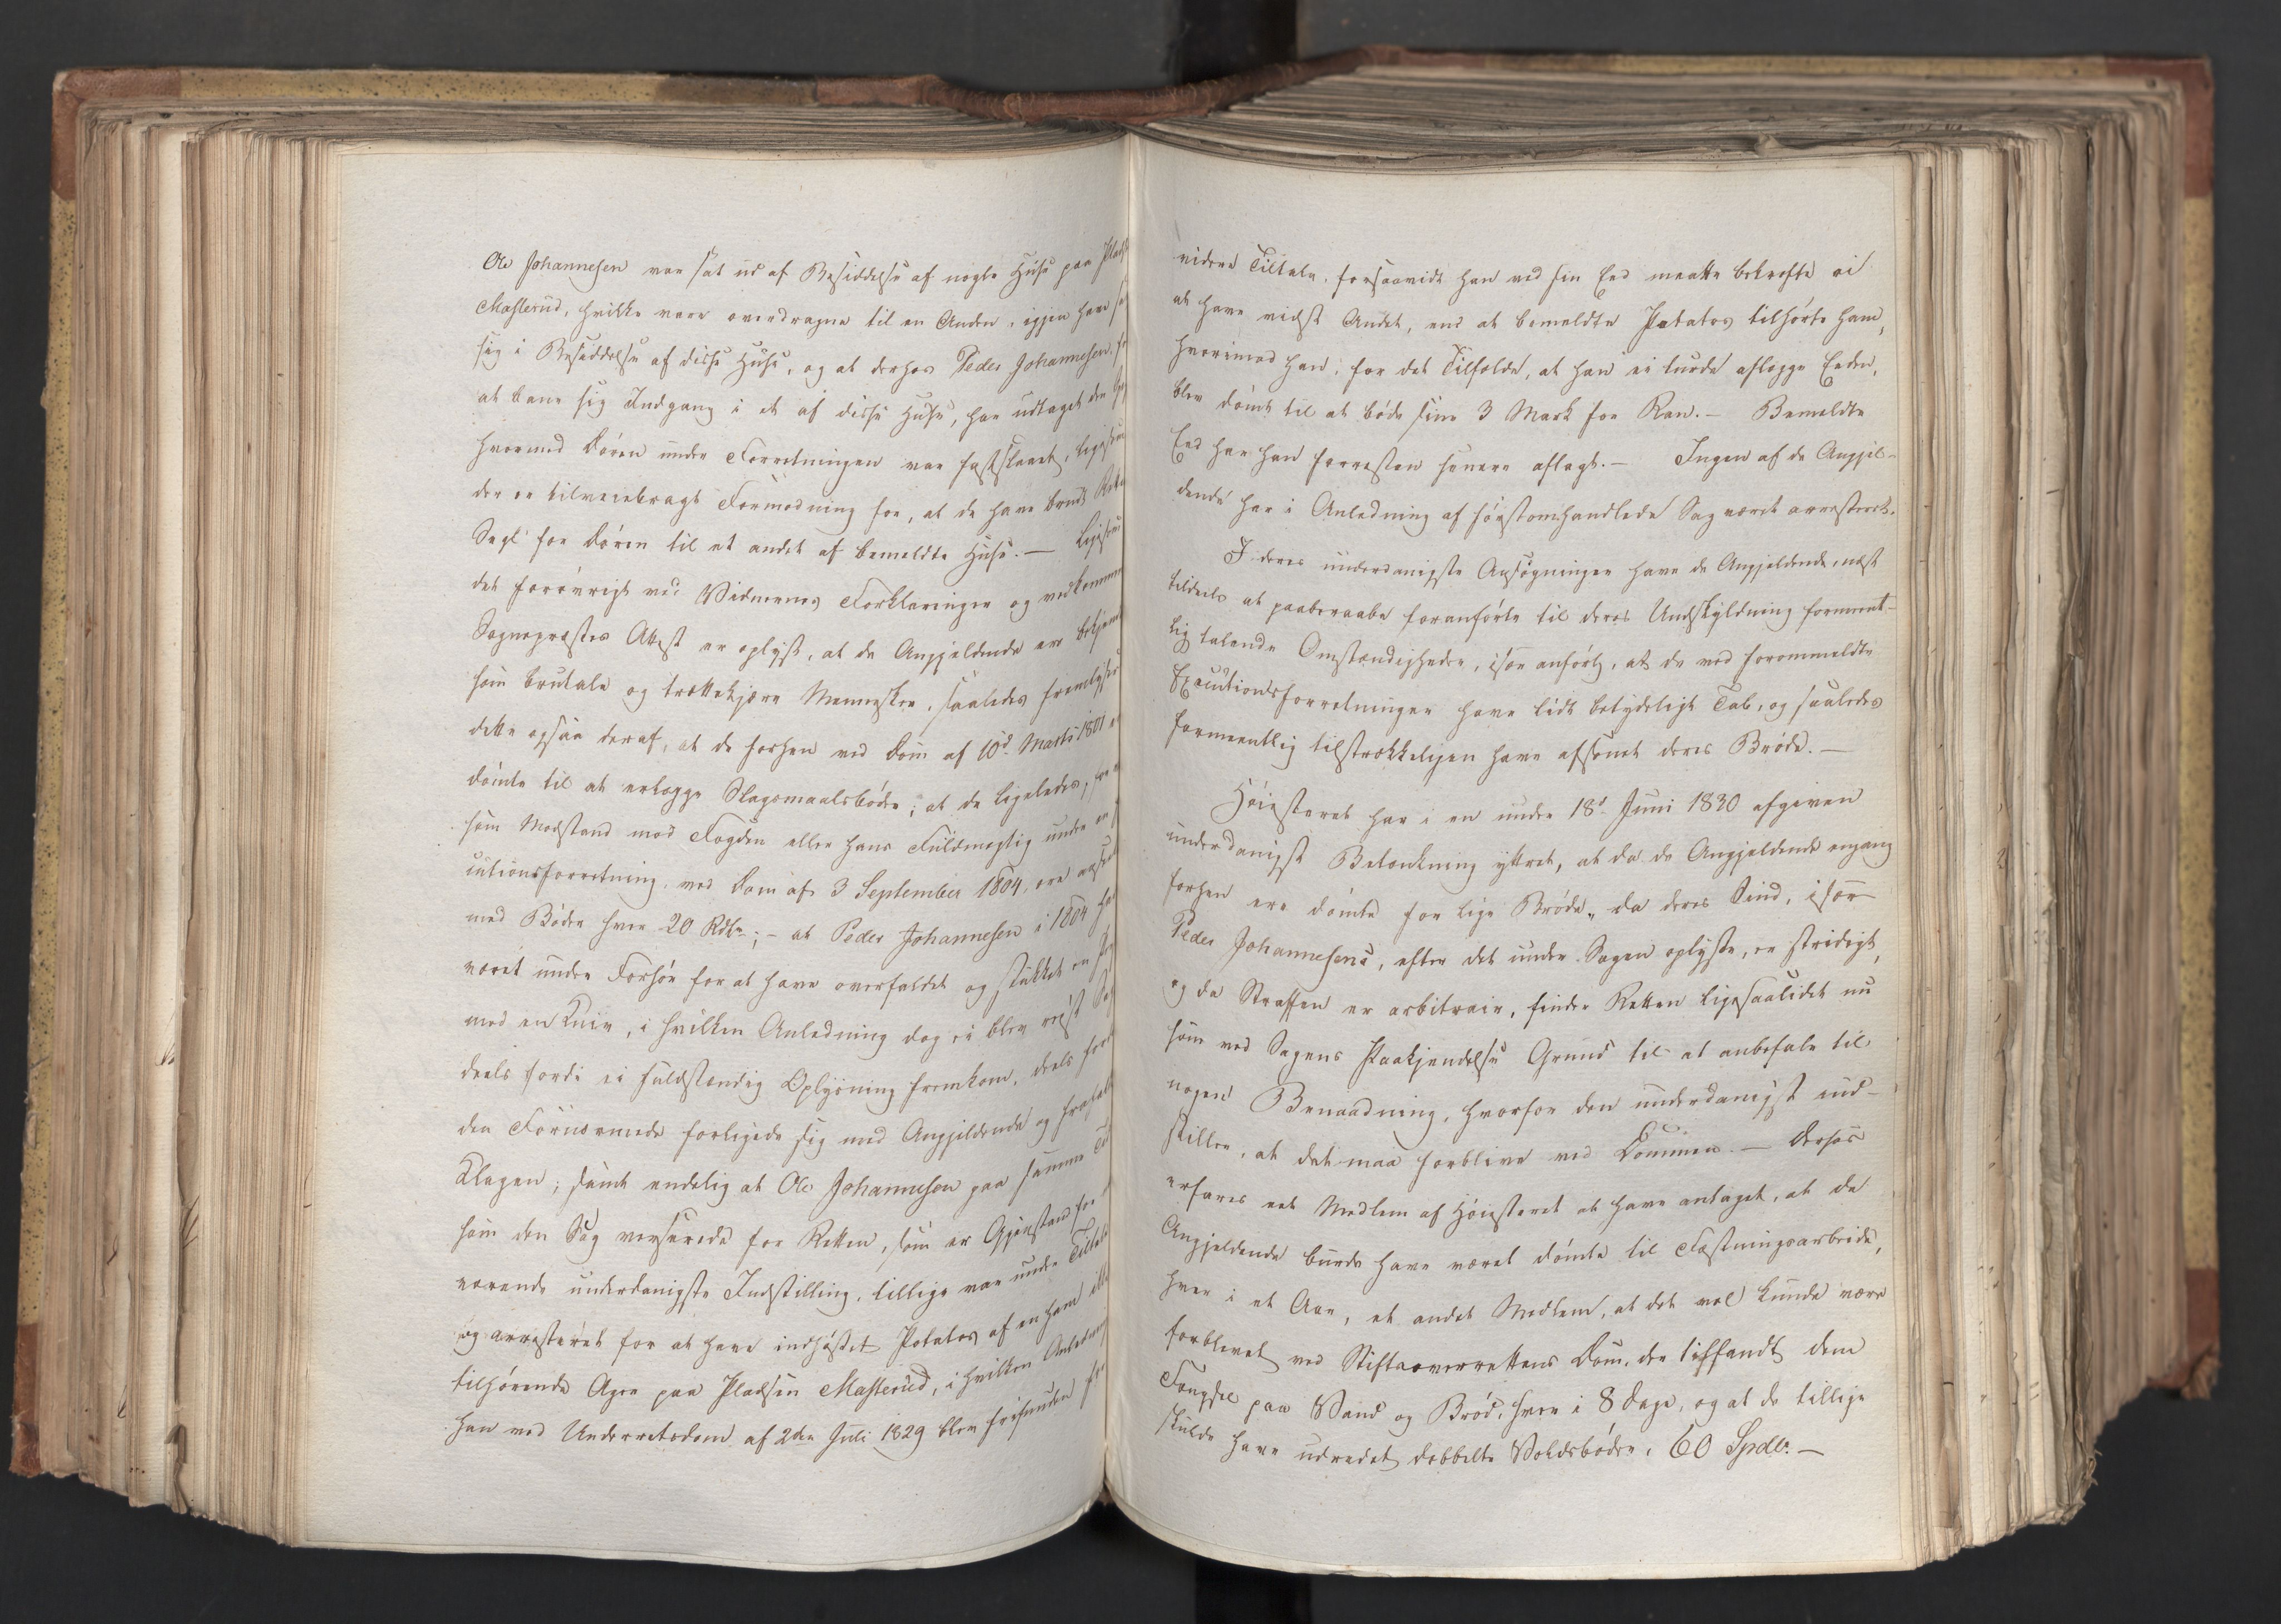 Ole Johannesen var sat ud af Besiddelse af nogle Huse paa Pladsen
Masterud, hvilke vare overdragne til en Anden, igjen have sat
sig i Besiddelse af disse Huse, og at derhos Peder Johannesen, for
at bane sig Indgang i et af disse Huse, har udtaget den
hvormed Døren under Forretningen var fastslaaet, ligesom
der er tilveiebragt Formodning for, at de have brudt Rettens
Segl for Døren til et andet af bemeldte Huse. — Ligesom
det forøvrigt ved Vidnernes Forklaringer og vedkommende
Sognepræstes Attest er oplyst, at de Angjeldende ere bekjendte
som brutale og trættekjære Mennesker, saaledes fremlyser
dette ogsaa deraf, at de forhen ved Dom af 10d Marts 1801 ere
dømte til at erlægge Slagsmaalsbøder; at de ligeledes, for
som Modstand mod Fogden eller hans Fuldmægtig under en
cutionsforretning, ved Dom af 3 September 1804, ere
med Bøder hver 20 Rdlr; – at Peder Johannesen i 1804 har
været under Forhør for at have overfaldet og stukket en
med en Kniv, i hvilken Anledning dog ei blev reist Sag
deels fordi ei fuldstændig Oplysning fremkom, deels fordi
den Fornærmede forligede sig med Angjeldende og frafaldt
Klagen; samt endelig at Ole Johannesen paa samme Tid
som den Sag verserede for Retten, som er Gjenstand for
værende underdanigste Indstilling, tillige var under Tiltale
og arresteret for at have indhøstet Potatos af en ham ikke
tilhørende Ager paa Pladsen Masterud, i hvilken Anledning
han ved Underretsdom af 2den Juli 1829 blev frifunden for
videre Tiltale, forsaavidt han ved sin Eed maatte bekræfte ei
at have vidst Andet, end at bemeldte Potatos tilhørte ham,
hvorimod han, for det Tilfælde, at han ei turde aflægge Eeden,
blev dømt til at bøde sine 3 Mark for Ran. — Bemeldte
Eed har han forresten senere aflagt. — Ingen af de Angjel-
dende har i Anledning af førstomhandlede Sag været arresteret.
I deres underdanigste Ansøgninger have de Angjeldende, næst
tildeels at paaberaabe foranførte til deres Undskyldning forment-
lig talende Omstændigheder, især anført, at de ved forommeldte
Executionsforretninger have lidt betydeligt Tab, og saaledes
formeentlig tilstrækkeligen have afsonet deres Brøde. —
Høiesteret har i en under 18d Juni 1830 afgiven
underdanigst Betænkning yttret, at da de Angjeldende engang
forhen ere dømte for lige Brøde, da deres Sind, især
Peder Johannesens, efter det under Sagen oplyste, er stridigt,
og da Straffen er arbitrair, finder Retten ligesaalidet nu
som ved Sagens Paakjendelse Grund til at anbefale til
nogen Benaadning, hvorfor den underdanigst ind-
stiller, at det maa forblive ved Dommen. — Derhos
erfares eet Medlem af Høiesteret at have antaget, at de
Angjeldende burde have været dømte til Fæstningsarbeide,
hver i et Aar, et andet Medlem, at det vel kunde være
forblevet ved Stiftsoverrettens Dom, der tilfandt dem
Fængsel paa Vand og Brød, hver i 8 Dage, og at de tillige
skulde have udredet dobbelte Voldsbøder, 60 Spdlr. —